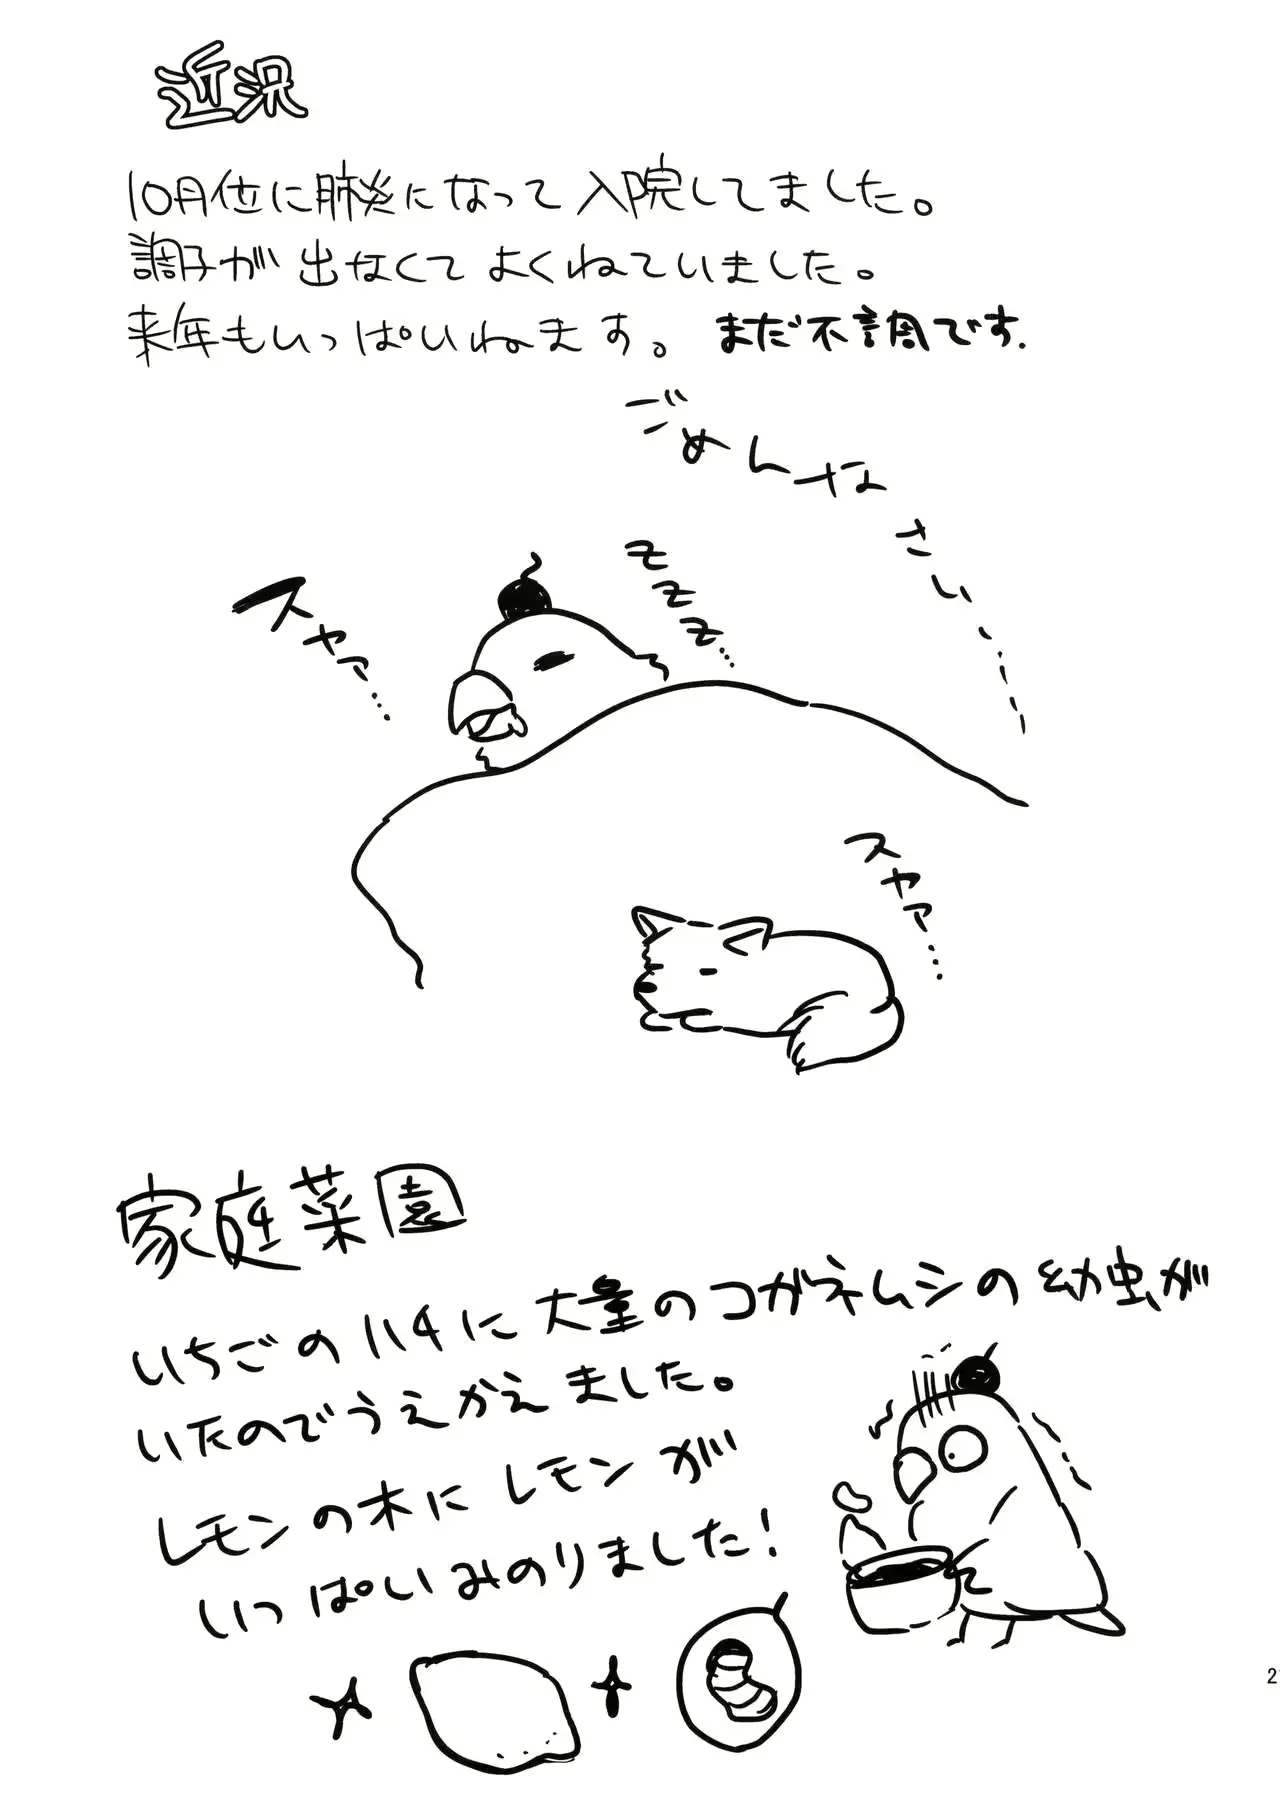 近況
10月位に肺炎になって入院してました。
調子が出なくてよくねていました。
来年もいっぱいねます。まだ不調です.
ごめんなさい
zzz...
スヤァ...
スヤァ...
家庭菜園
いちごのハチに大量のコガネムシの幼虫が
いたのでうえかえました。
レモンの木にレモンが
いっぱいみのりました!